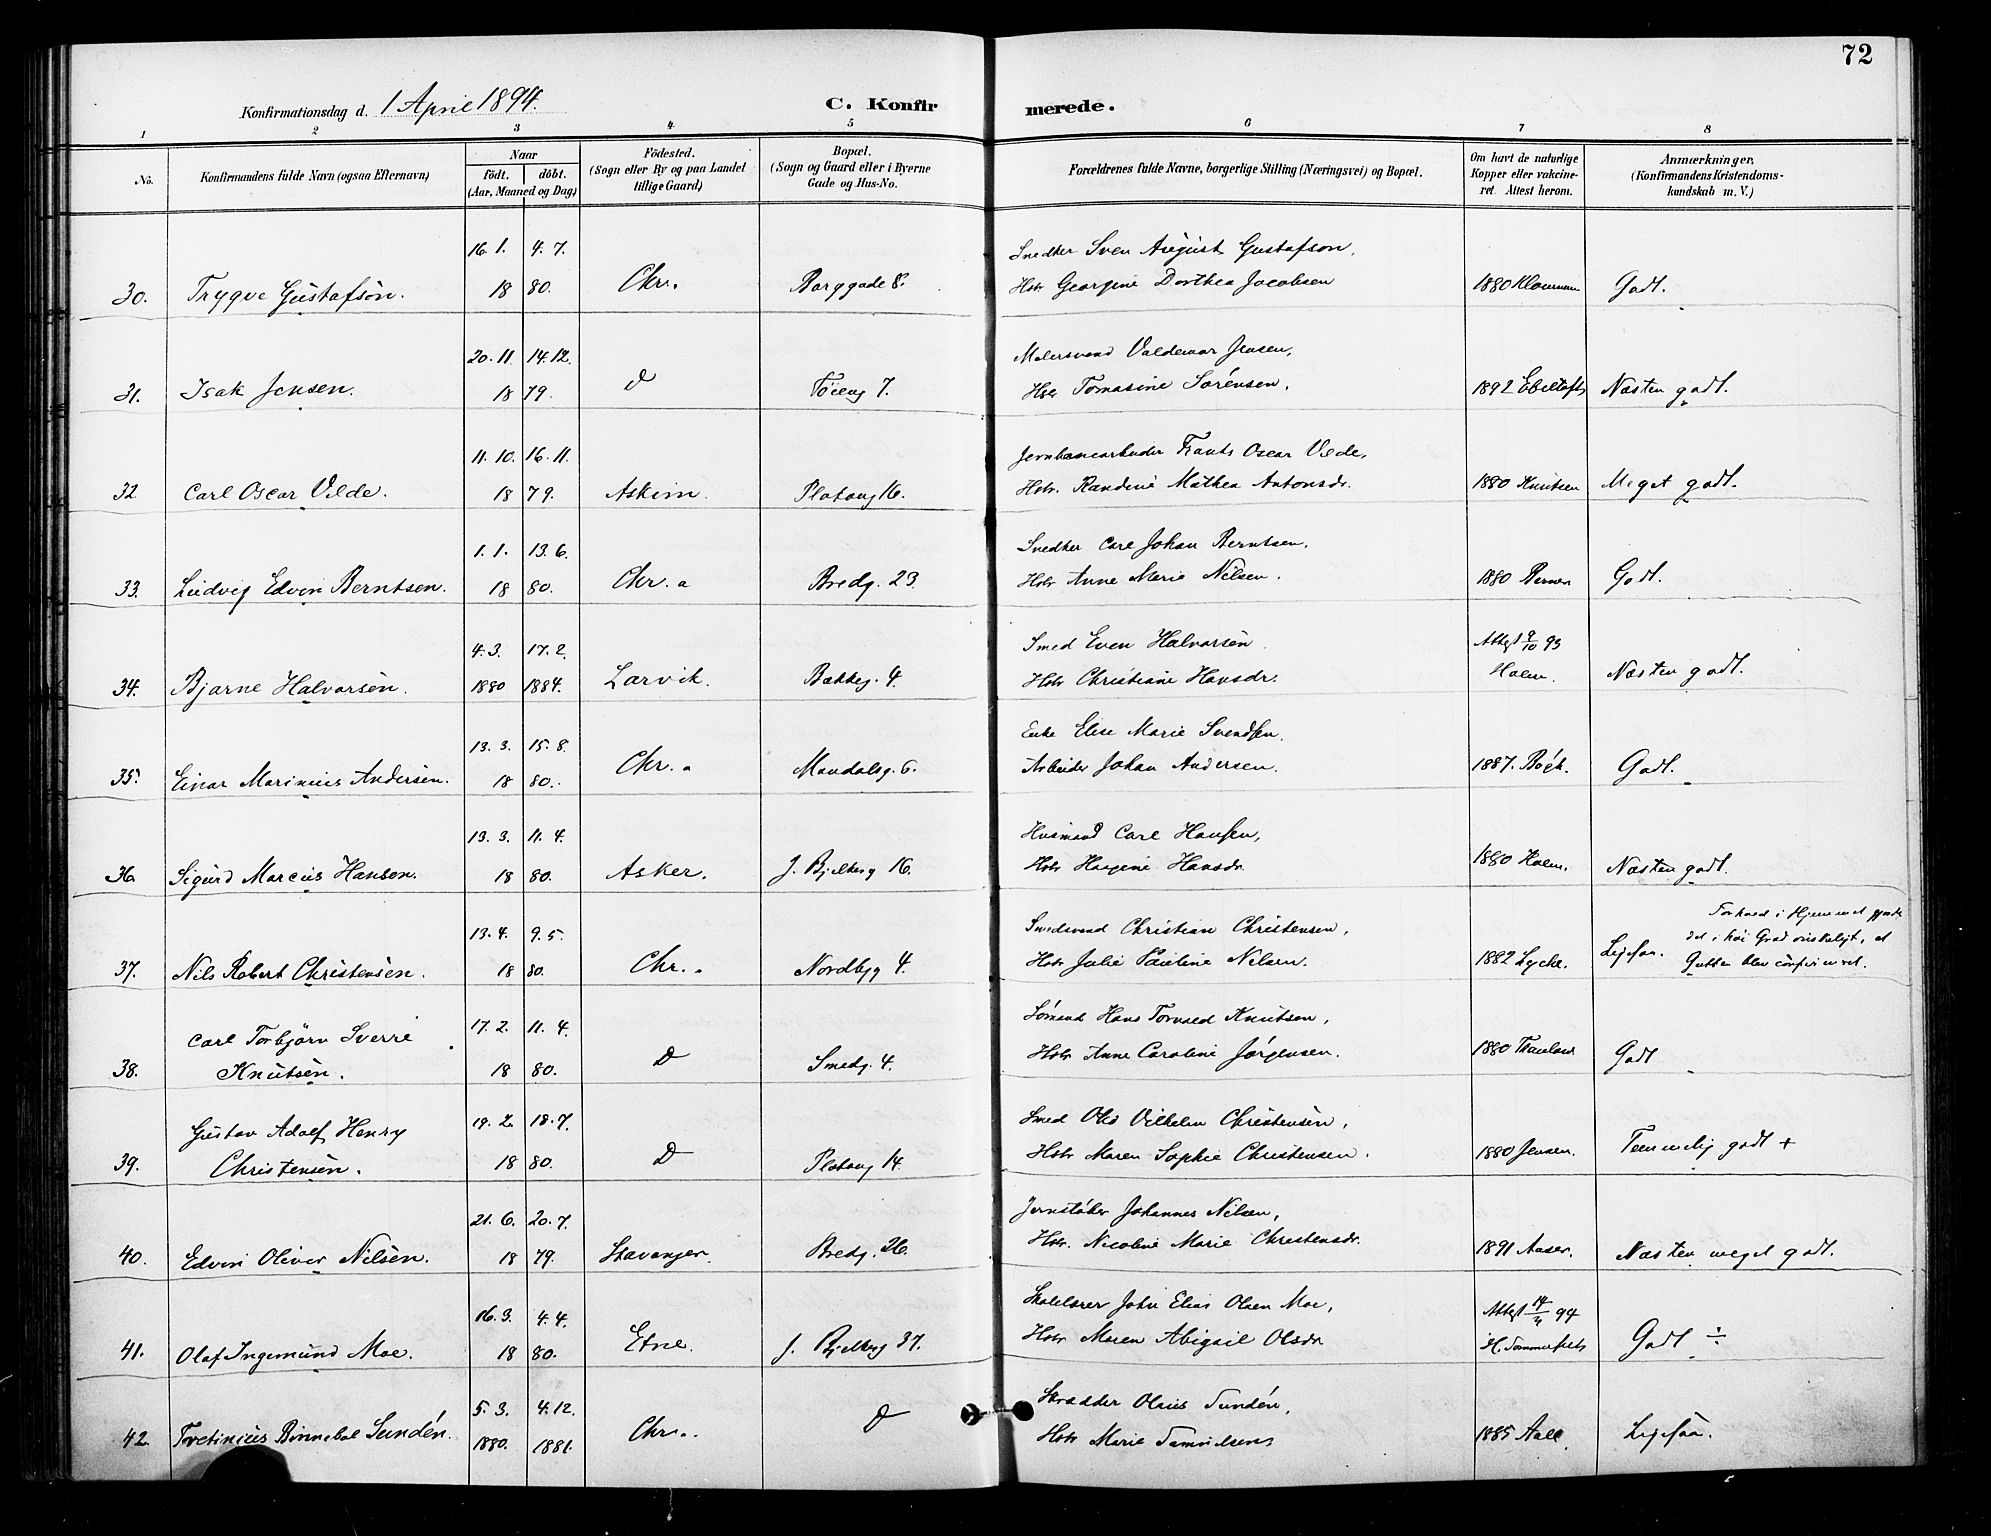 72
Konfirmationsdag d. 1 April 1894.
C. Konfirmerede.
1 2 3 4 5 6 7 8
No.
Konfirmandens fulde Navn (ogsaa Efternavn)
Naar
født. døbt.
(Aar, Maaned og Dag)
Födested.
(Sogn eller By og paa Landet
tillige Gaard)
Bopæl.
(Sogn og Gaard eller i Byerne
Gade og Hus-No.
Forældrenes fulde Navne, borgerlige Stilling (Næringsvei) og Bopæl.
Om havt de naturlige
Kopper eller vakcine-
ret. Attest herom.
Anmærkninger,
(Konfirmandens Kristendoms-
kundskab m. V.)
16. 1. 4. 7. Snedker Sven August Gustafson,
30. Trygve Gustafson. 18 80. Chr. Borggade 8. Hstr Georgine Dorthea Jacobsen 1880 Godt.
20. 11. 14. 12. Malersvend Valdemar Jensen,
31. Isak Jensen. 18 79. D Töieng 7. Hstr Tomasine Sörensen. 1892 Ebeltoft Næsten godt.
11. 10. 16. 11. Jernbanearbeider Frants Oscar Vilde,
32 Carl Oscar Vilde. 18 79. Askim. Platoug 16. Hstr. Randine Mathea Antonsdr. 1880 Knutsen Meget godt.
1. 1. 13. 6. Snedker Carl Johan Berntsen,
33. Ludvig Edvin Berntsen. 18 80. Chr. a Bredg. 23 Hstr Anne Marie Nilsen. 1880 Godt.
4. 3. 17. 2. Smed Even Halvorsen Attest 9/10 93
34. Bjarne Halvorsen. 1880 1884. Larvik. Bakkeg. 4 Hstr Christiane Hansdr. Holm. Næsten godt.
13. 3. 15. 8. Enke Elise Marie Svendsen,
35. Einar Marinius Andersen. 18 80. Chr. a Mandalsg. 6. Arbeider Johan Andersen. 1887. Bögh. Godt.
13. 3. 11. 4. Husmand Carl Hansen,
36. Sigurd Marcus Hansen. 18 80. Asker. J. Bjelkeg 16. Hstr Hansdr. 1880 Holm. Næsten godt.
13. 4. 9. 5. Smedsvend Christian Christensen, Forhold i Hjemmet gjorde
37. Nils Robert Christensen. 18 80. Chr. a Nordbyg 4. Hstr Julie Pauline Nilsen. 1882 Lyche. Ligesaa. det i höi Grad önskeligt, at
Gutten blev confirmeret.
17. 2. 11. 4 Sömand Hans Torvald Knutsen,
38. Carl Torbjörn Sverre Knutsen. 18 80. D Smedg. 4. Hstr Anne Caroline Jörgensen. 1880 Thaulow Godt
19. 2. 18. 7. Smed Olo Vilhelm Christensen,
39. Gustav Adolf Henry Christensen. 18 80. D Platoug 14 Hstr Maren Sophie Christensen. 1880 Jensen. Temmelig godt +
21. 6. 20. 7. Jernstöber Johannes Nilsen,
40. Edvin Oliver Nilsen. 18 79. Stavanger Bredg. 26. Hstr. Nicoline Marie Christensdr. 1891 Aaser. Næsten meget godt.
16. 3. 4. 4. Skolelærer John Elias Olsen Moe, Attest 94
41. Olaf Ingemund Moe. 18 80. Etne. J. Bjelkeg 37. Hstr Maren Abigail Olsdr H. Sommerfelt Godt ÷
5. 3. 4. 12. Skrædder Olaus Sundén,
42. Sundén. 1880. 1881. Chr. D Hstr Marie Samuelsen 1885 Aall Ligesaa.